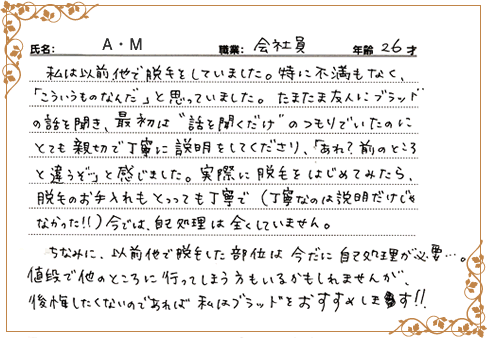 氏名: A・M 職業: 会社員 年齢 26 才
私は以前他で脱毛をしていました。特に不満もなく、
「こういうものなんだ」と思っていました。たまたま友人にブラッド
の話を聞き、最初は“話を聞くだけ”のつもりでいたのに
とても親切で丁寧に説明をしてくださり、「あれ?前のところ
と違うぞっ」と感じました。実際に脱毛をはじめてみたら、
脱毛のお手入れもとっっても丁寧で(丁寧なのは説明だけじゃ
なかった!!)今では、自己処理は全くしていません。
ちなみに、以前他で脱毛をした部位は今だに自己処理が必要…。
値段で他のところに行ってしまう方もいるかもしれませんが、
後悔したくないのであれば私はブラッドをおすすめします!!